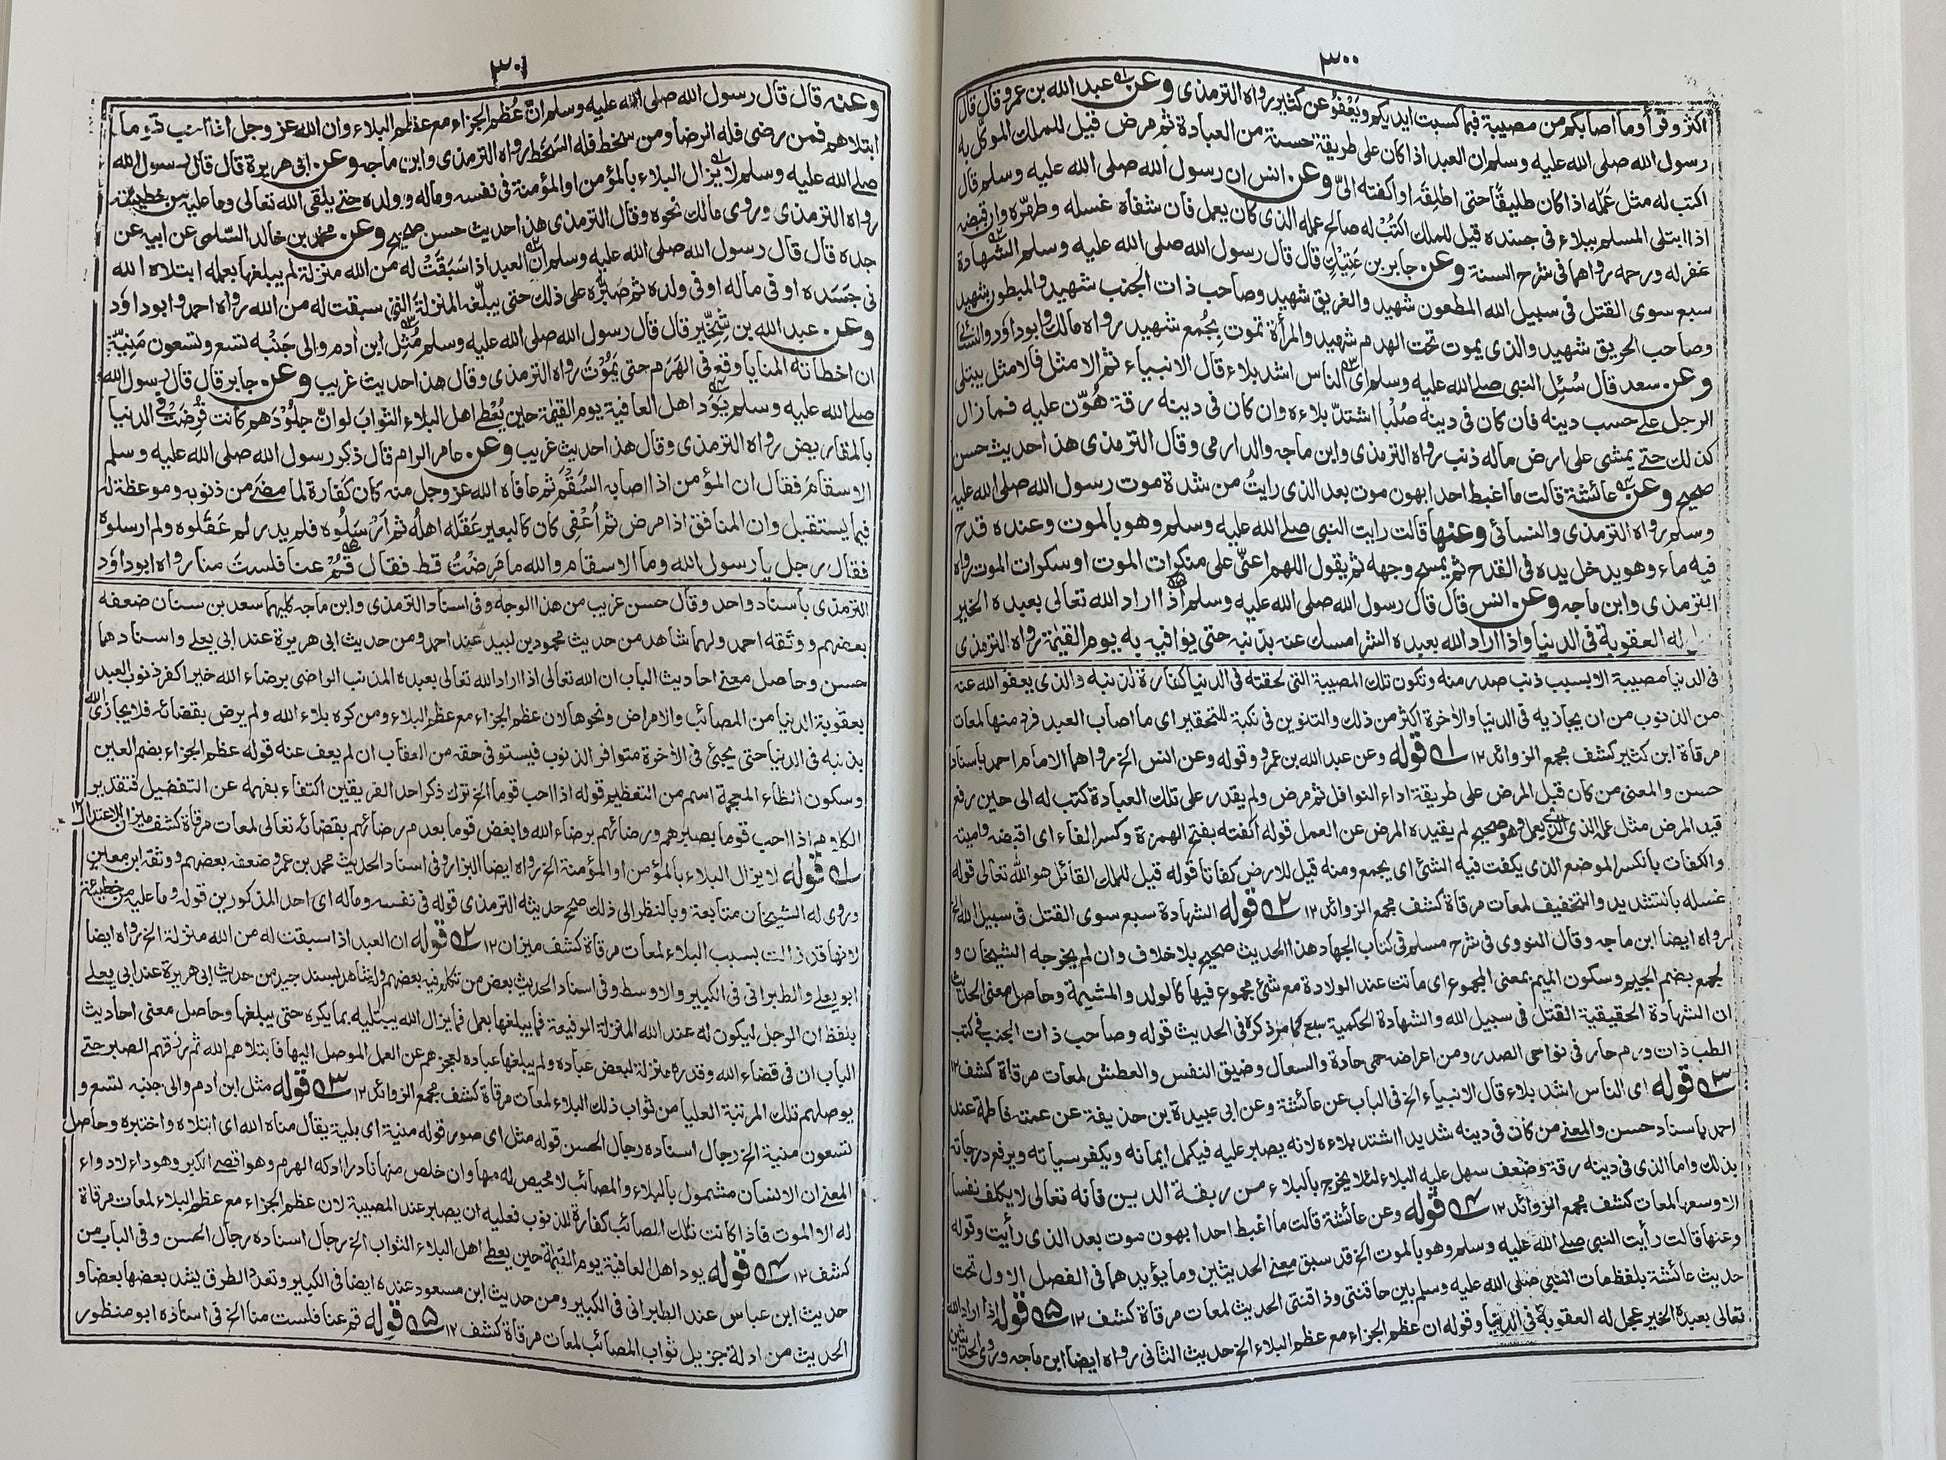 ٣٠٠
اكثر وقرأ وما اصابكم من مصيبة فبما كسبت ايديكم ويعفو عن كثير رواه الترمذى وعن عبد الله بن عمرو قال قال
رسول الله صلى الله عليه وسلم ان العبد اذا كان على طريقة حسنة من العبادة ثم مرض قيل للملك الموكل به
اكتب له مثل عمله اذا كان طليقا حتى اطلقه او اكفته الىّ وعن انس ان رسول الله صلى الله عليه وسلم قال
اذا ابتلى المسلم ببلاء فى جسده قيل للملك اكتب له صالح عمله الذى كان يعمل فان شفاه غسله وطهره وان قبضه
غفر له ورحمه رواهما فى شرح السنة وعن جابر بن عتيك قال قال رسول الله صلى الله عليه وسلم الشهادة
سبع سوى القتل فى سبيل الله المطعون شهيد والغريق شهيد وصاحب ذات الجنب شهيد والمبطون شهيد
وصاحب الحريق شهيد والذى يموت تحت الهدم شهيد والمرأة تموت بجُمع شهيد رواه مالك وابو داود والنسائى
وعن سعد قال سُئل النبى صلى الله عليه وسلم اى الناس اشد بلاء قال الانبياء ثم الامثل فالامثل يبتلى
الرجل على حسب دينه فان كان فى دينه صُلبا اشتدّ بلاءه وان كان فى دينه رقة هُوّن عليه فما زال
كذلك حتى يمشى على ارض ماله ذنب رواه الترمذى وابن ماجه والدارمى وقال الترمذى هذا حديث حسن
صحيح وعن عائشة قالت ما اغبط احدا بهون موت بعد الذى رايتُ من شدة موت رسول الله صلى الله عليه
وسلم رواه الترمذى والنسائى وعنها قالت رايت النبى صلى الله عليه وسلم وهو بالموت وعنده قدح
فيه ماء وهو يدخل يده فى القدح ثم يمسح وجهه ثم يقول اللهم اعنّى على منكرات الموت او سكرات الموت رواه
الترمذى وابن ماجه وعن انس قال قال رسول الله صلى الله عليه وسلم اذا اراد الله تعالى بعبده الخير
له العقوبة فى الدنيا واذا اراد الله بعبده الشر امسك عنه بذنبه حتى يوافيه به يوم القيٰمة رواه الترمذى
فى الدنيا مصيبة الا بسبب ذنب صدر منه وتكون تلك المصيبة التى لحقته فى الدنيا كفارة لذنبه والذى يعفو الله عنه
من الذنوب من ان يجازيه فى الدنيا والاٰخرة اكثر من ذلك والتنوين فى نكبة للتحقير اى ما اصاب العبد فرد منها لمعات
مرقاة ابن كثير كشف مجمع الزوائد ١٢ ١ه قوله وعن عبد الله بن عمرو وقوله وعن انس الخ رواهما الامام احمد باسناد
حسن والمعنى من كان قبل المرض على طريقة اداء النوافل ثم مرض ولم يقدر على تلك العبادة كتب له الى حين رفع
قيد المرض مثل عمله الذى يعمل وهو صحيح لم يقيده المرض عن العمل قوله اكفته بفتح الهمزة وكسر الفاء اى اقبضه واميته
والكفات بالكسر الموضع الذى يكفت فيه الشئ اى يجمع ومنه قيل للارض كفاتا قوله قيل للملك القائل هو الله تعالى قوله
غسله بالتشديد والتخفيف لمعات مرقاة كشف مجمع الزوائد ١٢ ٢ه قوله الشهادة سبع سوى القتل فى سبيل الله الخ
رواه ايضا ابن ماجه وقال النووى فى شرح مسلم فى كتاب الجهاد هذا الحديث صحيح بلا خلاف وان لم يخرجه الشيخان و
بجمع بضم الجيم وسكون الميم بمعنى المجموع اى ماتت عند الولادة مع شئ مجموع فيها كالولد والمشيمة وحاصل معنى الحديث
ان الشهادة الحقيقية القتل فى سبيل الله والشهادة الحكمية سبع كما مر ذكره فى الحديث قوله وصاحب ذات الجنب فى كتب
الطب ذات ورم حار فى نواحى الصدر ومن اعراضه حمى حادة والسعال وضيق النفس والعطش لمعات مرقاة كشف ١٢
٣ه قوله اى الناس اشد بلاء قال الانبياء الخ فى الباب عن عائشة وعن ابى عبيدة بن حذيفة عن عمته فاطمة عند
احمد باسناد حسن والمعنى من كان فى دينه شديدا اشتد بلاءه لانه يصبر عليه فيكمل ايمانه ويكفر سياته ويرفع درجاته
بذلك واما الذى فى دينه رقة وضعف سهل عليه البلاء لئلا يخرج بالبلاء من ربقة الدين فانه تعالى لا يكلف نفسا
الا وسعها لمعات كشف مجمع الزوائد ١٢ ٤ه قوله وعن عائشة قالت ما اغبط احدا بهون موت بعد الذى رأيت وقوله
وعنها قالت رأيت النبى صلى الله عليه وسلم وهو بالموت الخ قد سبق معنى الحديثين وما يؤيدهما فى الفصل الاول تحت
حديث عائشة بلفظ مات النبى صلى الله عليه وسلم بين حاقنتى وذاقنتى الحديث لمعات مرقاة كشف ١٢ ٥ه قوله اذا اراد الله
تعالى بعبده الخير عجل له العقوبة فى الدنيا وقوله ان عظم الجزاء مع عظم البلاء الخ حديث الثانى رواه ايضا ابن ماجه وروى الحديثين
٣٠١
وعنه قال قال رسول الله صلى الله عليه وسلم انّ عُظم الجزاء مع عظم البلاء وان الله عز وجل اذا احب قوما
ابتلاهم فمن رضى فله الرضا ومن سخط فله السخط رواه الترمذى وابن ماجه وعن ابى هريرة قال قال رسول الله
صلى الله عليه وسلم لا يزال البلاء بالمؤمن او المؤمنة فى نفسه وماله وولده حتى يلقى الله تعالى وما عليه من خطيئة
رواه الترمذى وروى مالك نحوه وقال الترمذى هذا حديث حسن صحيح وعن محمد بن خالد السّلمى عن ابيه عن
جده قال قال رسول الله صلى الله عليه وسلم انّ العبد اذا سَبَقَتْ له من الله منزلة لم يبلغها بعمله ابتلاه الله
فى جَسَده او فى ماله او فى ولده ثم صبّره على ذلك حتى يبلّغه المنزلة التى سبقت له من الله رواه احمد وابو داود
وعن عبد الله بن شِخِّير قال قال رسول الله صلى الله عليه وسلم مُثّل ابن اٰدم والى جَنْبه تسع وتسعون مَنِيّة
ان اخطاته المنايا وقع فى الهَرَم حتى يَمُوْت رواه الترمذى وقال هذا حديث غريب وعن جابر قال قال رسول الله
صلى الله عليه وسلم يَوَد اهل العافية يوم القيٰمة حين يُعْطٰى اهل البلاء الثواب لو انّ جلودهم كانت قُرِضَتْ فى الدنيا
بالمقاريض رواه الترمذى وقال هذا حديث غريب وعن عامر الرام قال ذكر رسول الله صلى الله عليه وسلم
الاسقام فقال ان المؤمن اذا اصابه السُّقْم ثم عافاه الله عز وجل منه كان كفارة لما مضى من ذنوبه وموعظة له
فيما يستقبل وان المنافق اذا مرض ثم اُعْفِى كان كالبعير عَقَله اهلُه ثم اَرْسَلُوه فلم يدر لم عَقَلوه ولم ارسلوه
فقال رجل يا رسول الله وما الاسقام والله ما مَرضْتُ قط فقال قُمْ عنا فلستَ منا رواه ابو داود
الترمذى باسناد واحد وقال حسن غريب من هذا الوجه وفى اسناد الترمذى وابن ماجه كليهما سعد بن سنان ضعفه
بعضهم ووثقه احمد ولهما شاهد من حديث محمود بن لبيد عند احمد ومن حديث ابى هريرة عند ابى يعلى واسنادهما
حسن وحاصل معنى احاديث الباب ان الله تعالى اذا اراد الله تعالى بعبده المذنب الراضى برضاء الله خيرا كفر ذنوب العبد
بعقوبة الدنيا من المصائب والامراض ونحوها لان عظم الجزاء مع عظم البلاء ومن كره بلاء الله ولم يرض بقضائه فلا يجازى الله
بذنبه فى الدنيا حتى يجئ فى الاٰخرة متوافر الذنوب فيستوفى حقه من العقاب ان لم يعف عنه قوله عظم الجزاء بضم العين
وسكون الظاء المعجمة اسم من التعظيم قوله اذا احب قوما الخ ترك ذكر احد الفريقين اكتفاء بفهمه عن التفضيل فتقدير
الكلام اذا احب قوما بصبرهم ورضائهم برضاء الله وابغض قوما بعدم رضائهم بقضائه تعالى لمعات مرقاة كشف ميزان الاعتدال ١٢
١ه قوله لا يزال البلاء بالمؤمن او المؤمنة الخ رواه ايضا البزار وفى اسناد الحديث محمد بن عمرو ضعفه بعضهم ووثقه ابن معين
وروى له الشيخان متابعة وبالنظر الى ذلك صحح حديثه الترمذى قوله فى نفسه وماله اى احد المذكورين قوله وما عليه من خطيئة
لانها قد زالت بسبب البلاء لمعات مرقاة كشف ميزان ١٢ ٢ه قوله ان العبد اذا سبقت له من الله منزلة الخ رواه ايضا
ابو يعلى والطبرانى فى الكبير والاوسط وفى اسناد الحديث بعض من تكلم فيه بعضهم وله شاهد بسند جيد من حديث ابى هريرة عند ابى يعلى
بلفظ ان الرجل ليكون له عند الله المنزلة الرفيعة فما يبلغها بعمل فما يزال الله يبتليه بما يكره حتى يبلغها وحاصل معنى احاديث
الباب ان فى قضاء الله وقدره منزلة لبعض عباده ولم يبلغها عباده لعجزهم عن العمل الموصل اليها فابتلاهم الله ثم رزقهم الصبر حتى
يوصلهم تلك المرتبة العليا من ثواب ذلك البلاء لمعات مرقاة كشف مجمع الزوائد ١٢ ٣ه قوله مثل ابن اٰدم والى جنبه تسع و
تسعون منية الخ رجال اسناده رجال الحسن قوله مثل اى صور قوله منية اى بلية يقال مناه الله اى ابتلاه واختبره وحاصل
المعنى ان الانسان مشمول بالبلاء والمصائب لا محيص له مها وان خلص منها نادرا ادركه الهرم وهو اقصى الكبر وهو داء لا دواء
له الا الموت فاذا كانت تلك المصائب كفارة للذنوب فعليه ان يصبر عند المصيبة لان عظم الجزاء مع عظم البلاء لمعات مرقاة
كشف ١٢ ٤ه قوله يود اهل العافية يوم القيٰمة حين يعطى اهل البلاء الثواب الخ رجال اسناده رجال الحسن وفى الباب من
حديث ابن عباس عند الطبرانى فى الكبير ومن حديث ابن مسعود عنده ايضا فى الكبير وتعدد الطرق يشد بعضها بعضا و
الحديث من ادلة جزيل ثواب المصائب لمعات مرقاة كشف ١٢ ٥ه قوله قم عنا فلست منا الخ فى اسناده ابو منظور